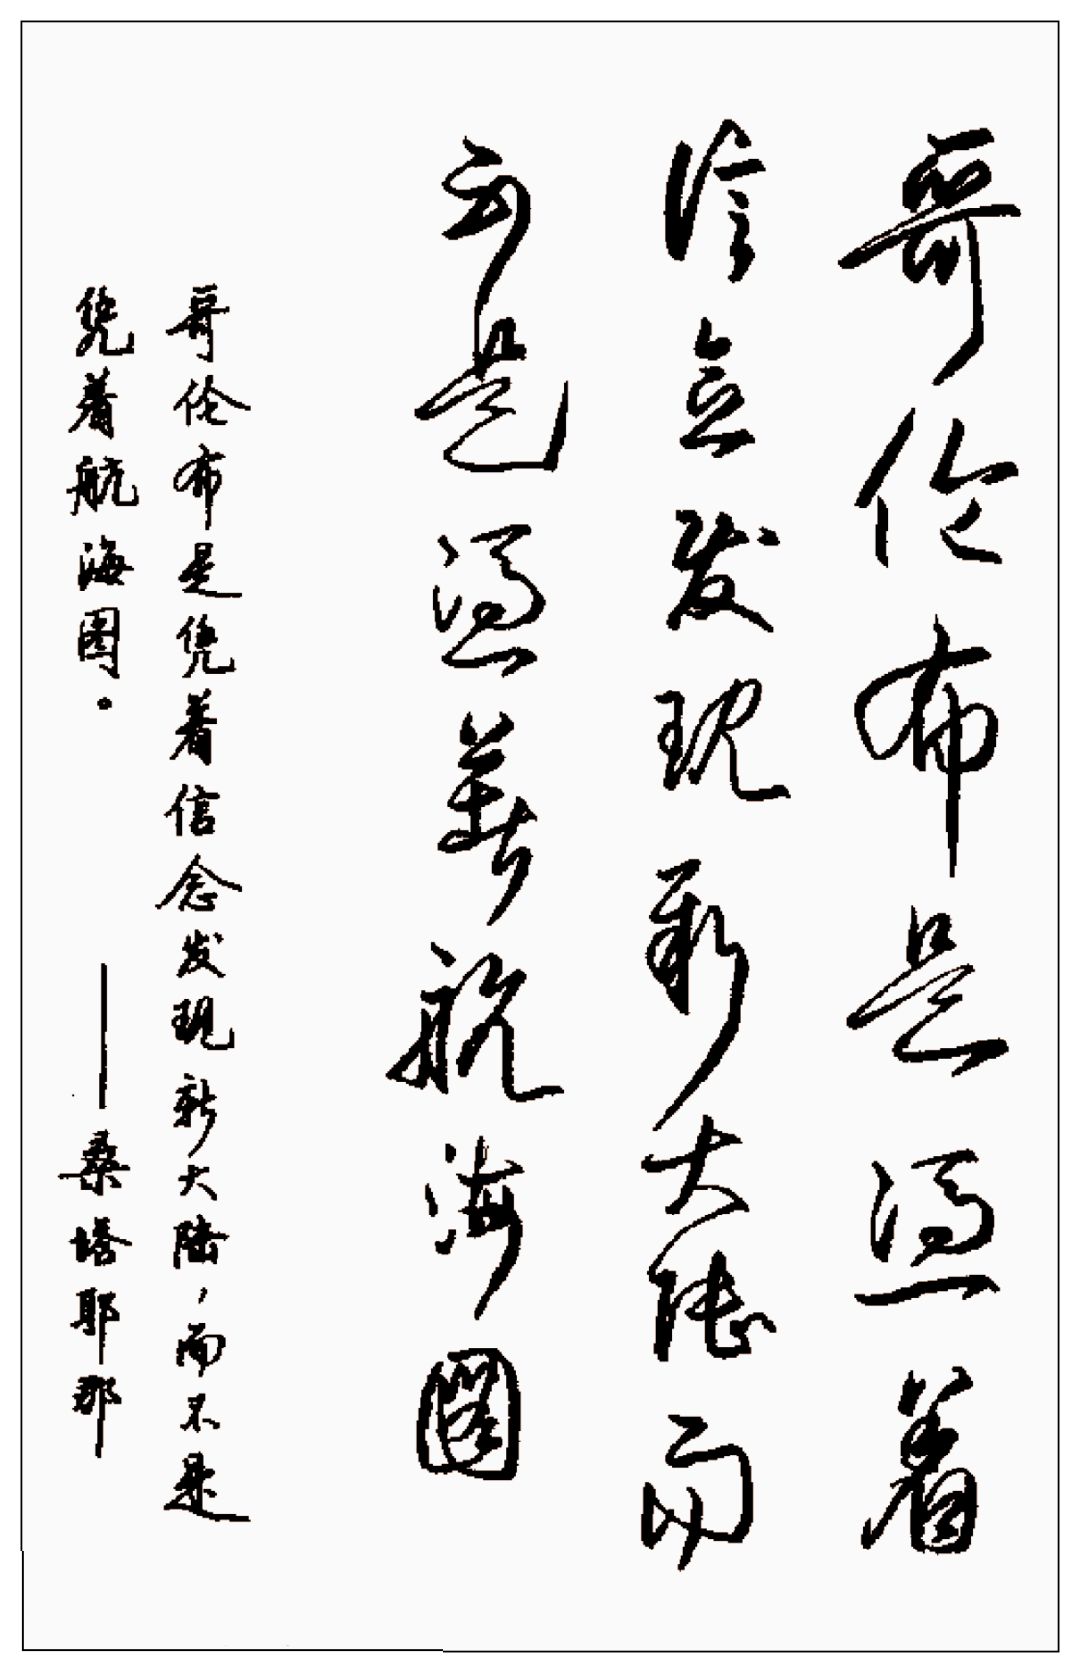 哥伦布是凭着
信念发现新大陆而
不是凭着航海图
哥伦布是凭着信念发现新大陆，而不是
凭着航海图。——桑塔耶那